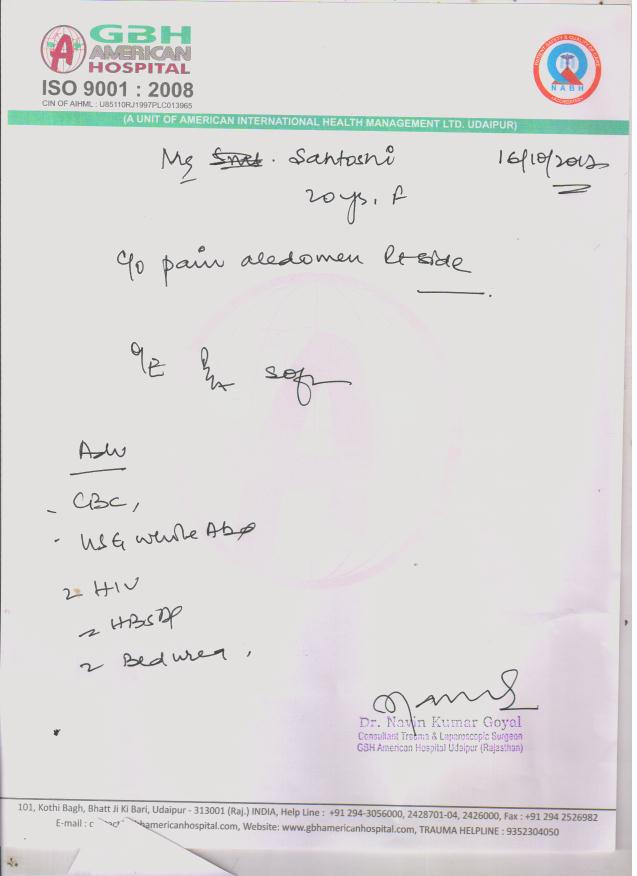 GBH
AMERICAN
HOSPITAL
ISO 9001 : 2008
CIN OF AIHML : U85110RJ1997PLC013965
PATIENT SAFETY & QUALITY OF CARE
NABH
(A UNIT OF AMERICAN INTERNATIONAL HEALTH MANAGEMENT LTD. UDAIPUR)
Santoshi 16/10/2012
20 ys. F
c/o pain abdomen Rt side
O/E P/A soft
Adv
- CBC,
- USG whole Abd
HIV
Dr. Navin Kumar Goyal
Consultant Trauma & Laparoscopic Surgeon
GBH American Hospital Udaipur (Rajasthan)
101, Kothi Bagh, Bhatt Ji Ki Bari, Udaipur - 313001 (Raj.) INDIA, Help Line : +91 294-3056000, 2428701-04, 2426000, Fax : +91 294 2526982
E-mail : hamericanhospital.com, Website: www.gbhamericanhospital.com, TRAUMA HELPLINE : 9352304050